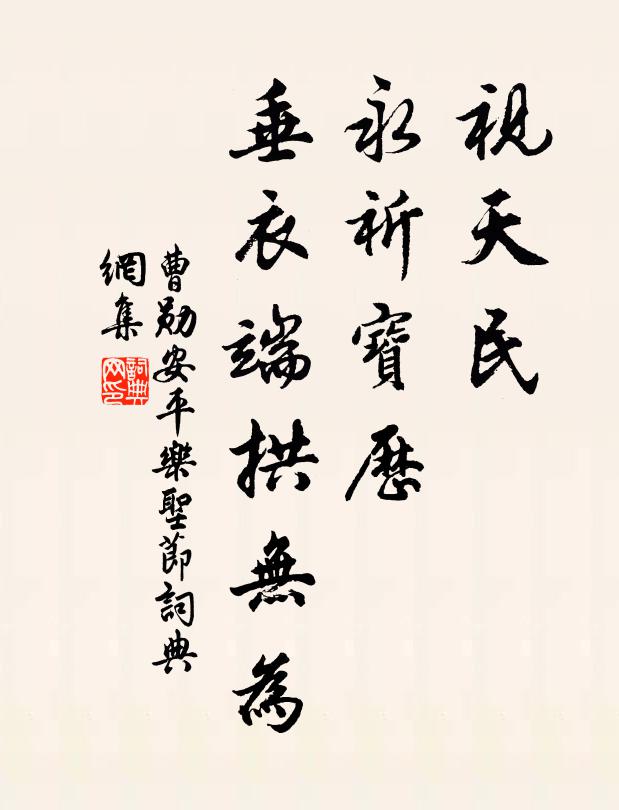 視天民
永祈寶歷
垂衣端拱無為
曹勛安平樂聖節詞典
網集
詞典
网印